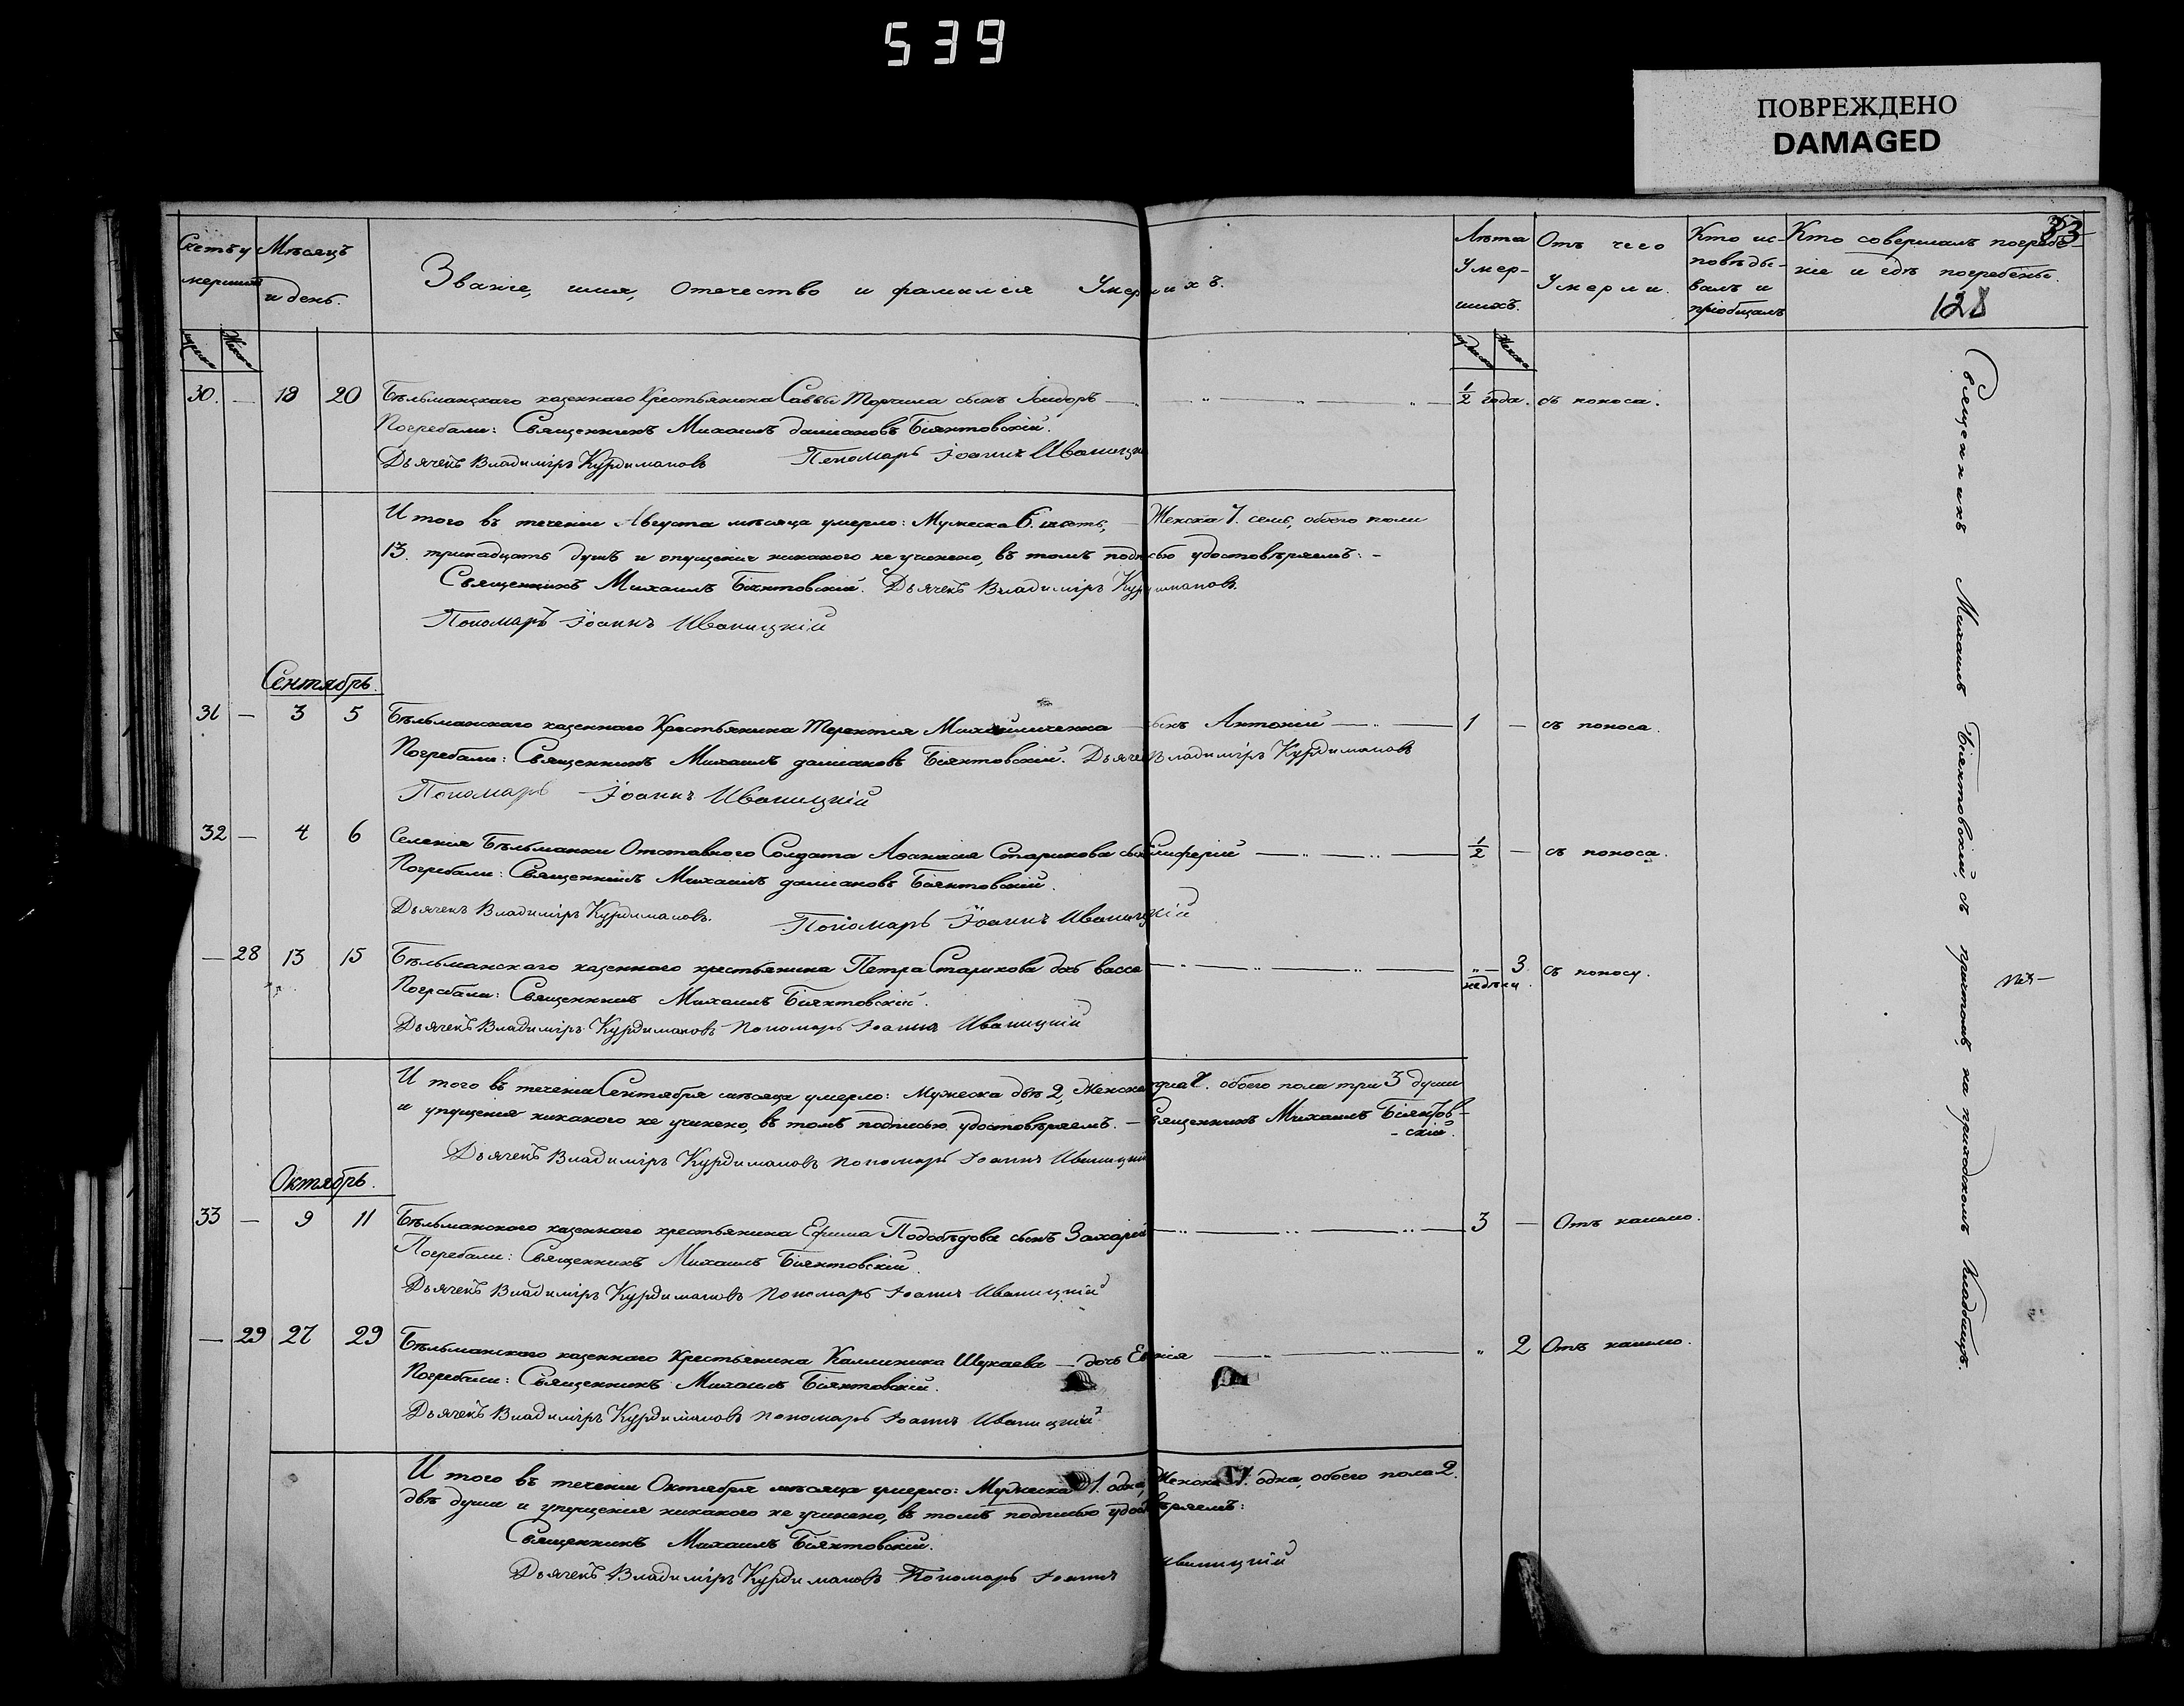 539
ПОВРЕЖДЕНО
DAMAGED
33
Счетъ умершихъ
Мѣсяцъ и день.
Званіе, имя, отечество и фамилія Умершихъ.
Лѣта Умер-
шихъ.
Отъ чего Умерли.
Кто ис-
повѣды-
валъ и
пріобщалъ
Кто совершалъ погребе-
ніе и гдѣ погребены.
128
30. — 18 20 Бѣльманскаго казеннаго Крестьянина Саввы Торчила сынъ Ісидоръ — ½ года. съ поноса.
Погребали: Священникъ Михаилъ Даміановъ Біянтовскій.
Дьячекъ Владиміръ Курдимановъ Пономарь Іоаннъ Иваницкі
И того въ теченіи Августа мѣсяца умерло: Мужеска 6. шесть, Женска 7. семь, обоего поли
13. тринадцать душъ и опущенія никакого не учинено, въ томъ подписью удостовѣряемъ: -
Священникъ Михаилъ Біянтовскій. Дьячекъ Владиміръ Курдимановъ.
Пономарь Іоаннъ Иваницкій
Сентябрь.
31 — 3 5 Бѣльманскаго казеннаго Крестьянина Терентія Михайличенка — сынъ Антоній — 1 — съ поноса.
Погребали: Священникъ Михаилъ Даміановъ Біянтовскій. Дьячекъ Владиміръ Курдимановъ
Пономарь Іоаннъ Иваницкій
32 — 4 6 Селенія Бѣльманки Отставного Солдата Аѳанасія Старикова сынъ Елиферій — ½ — съ поноса.
Погребали: Священникъ Михаилъ Даміановъ Біянтовскій.
Дьячекъ Владиміръ Курдимановъ. Пономарь Іоаннъ Иваницкій
— 28 13 15 Бѣльманскаго казеннаго крестьянина Петра Старикова дочь Васса — „ — 3 недѣли. съ поносу.
Погребали: Священникъ Михаилъ Біянтовскій.
Дьячекъ Владиміръ Курдимановъ Пономарь Іоаннъ Иваницкій
И того въ теченіи Сентября мѣсяца умерло: Мужеска двѣ 2, Женска одна 1. обоего пола три 3 души
и упущенія никакого не учинено, въ томъ подписью удостовѣряемъ. — Священникъ Михаилъ Біянтов-
-скій.
Дьячекъ Владиміръ Курдимановъ Пономарь Іоаннъ Иваницкій
Октябрь.
33 — 9 11 Бѣльманского казеннаго крестьянина Ефима Подобѣдова сынъ Захарій — 3 — Отъ кашлю.
Погребали: Священникъ Михаилъ Біянтовскій.
Дьячекъ Владиміръ Курдимановъ Пономарь Іоаннъ Иваницкій
— 29 27 29 Бѣльманскаго казеннаго Крестьянина Каллиника Шукаева — дочь — „ 2 Отъ кашлю.
Погребали: Священникъ Михаилъ Біянтовскій.
Дьячекъ Владиміръ Курдимановъ Пономарь Іоаннъ Иваницкій
И того въ теченіи Октября мѣсяца умерло: Мужеска 1. одна, Женска 1. одна, обоего пола 2.
двѣ души и упущенія никакого не учинено, въ томъ подписью удостовѣряемъ:
Священникъ Михаилъ Біянтовскій.
Дьячекъ Владиміръ Курдимановъ Пономарь Іоаннъ Иваницкій
Священникъ Михаилъ Біянтовскій, съ причтомъ, на приходскомъ Кладбищѣ.